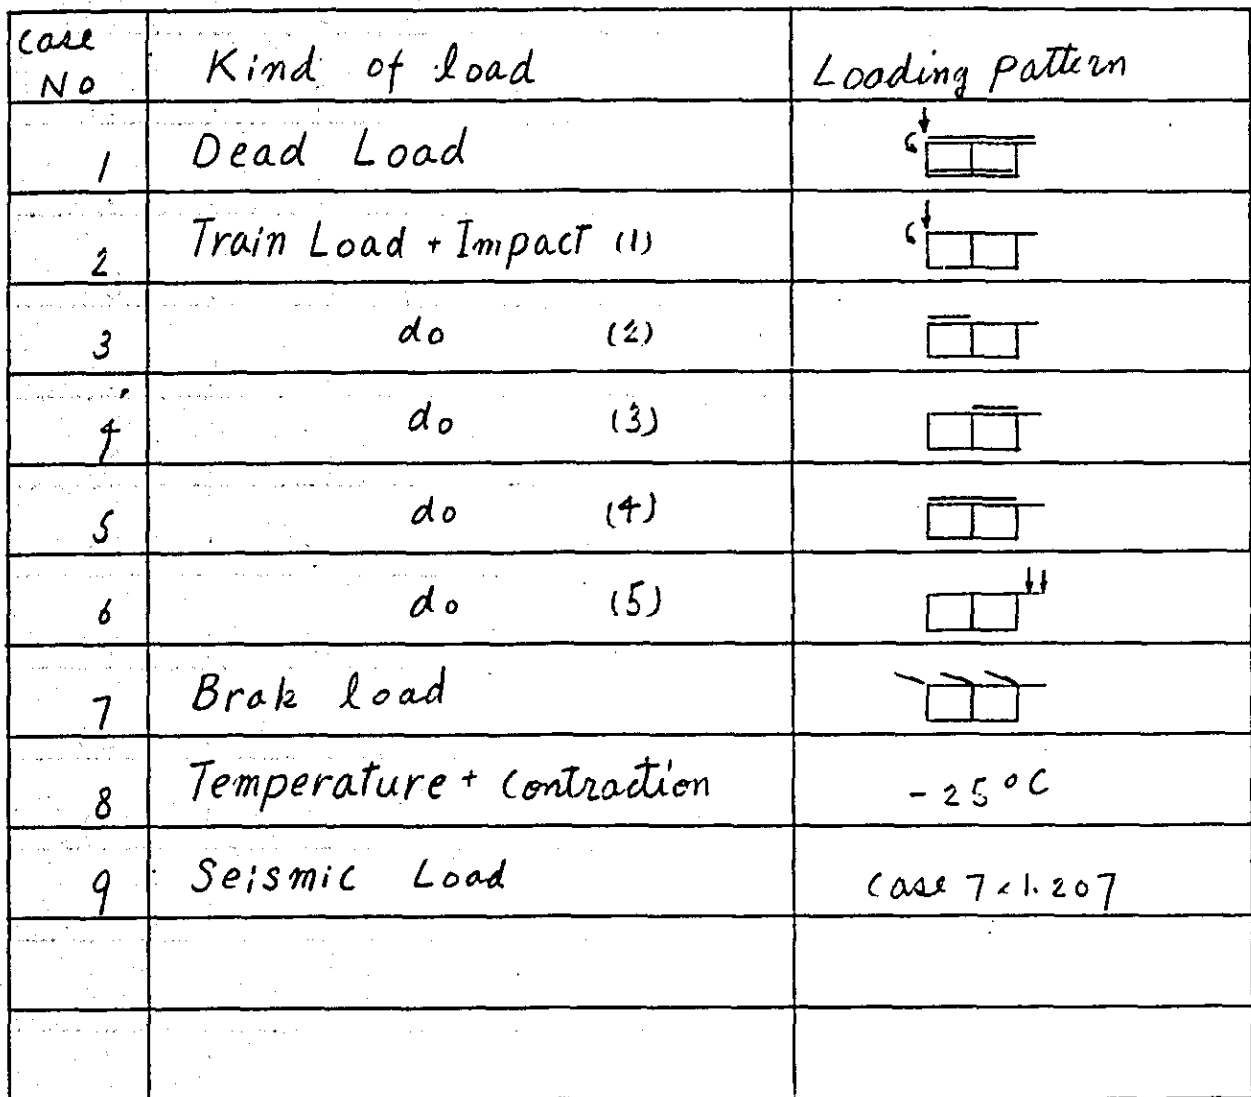 Case No Kind of load Loading pattern
1 Dead Load
2 Train Load + Impact (1)
3 do (2)
4 do (3)
5 do (4)
6 do (5)
7 Brak load
8 Temperature + Contraction -25°C
9 Seismic Load Case 7 × 1.207